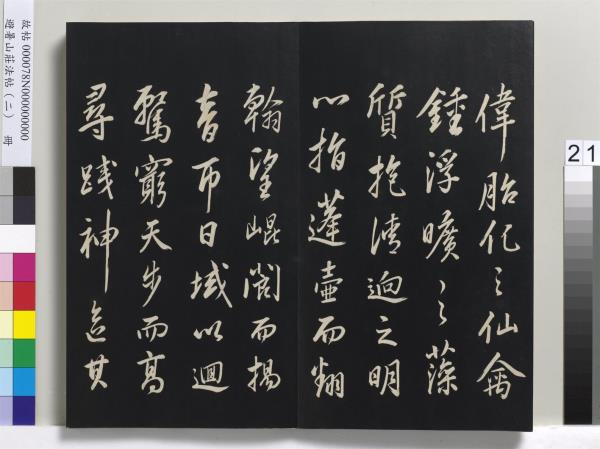 偉胎化之仙禽
鍾浮曠之藻
質抱清迥之明
心指蓬壺而翻
翰望崐閬而揚
音帀日域以迴
騖窮天步而高
尋踐神區其
故帖 000078N000000000
避暑山莊法帖(二) 冊
21